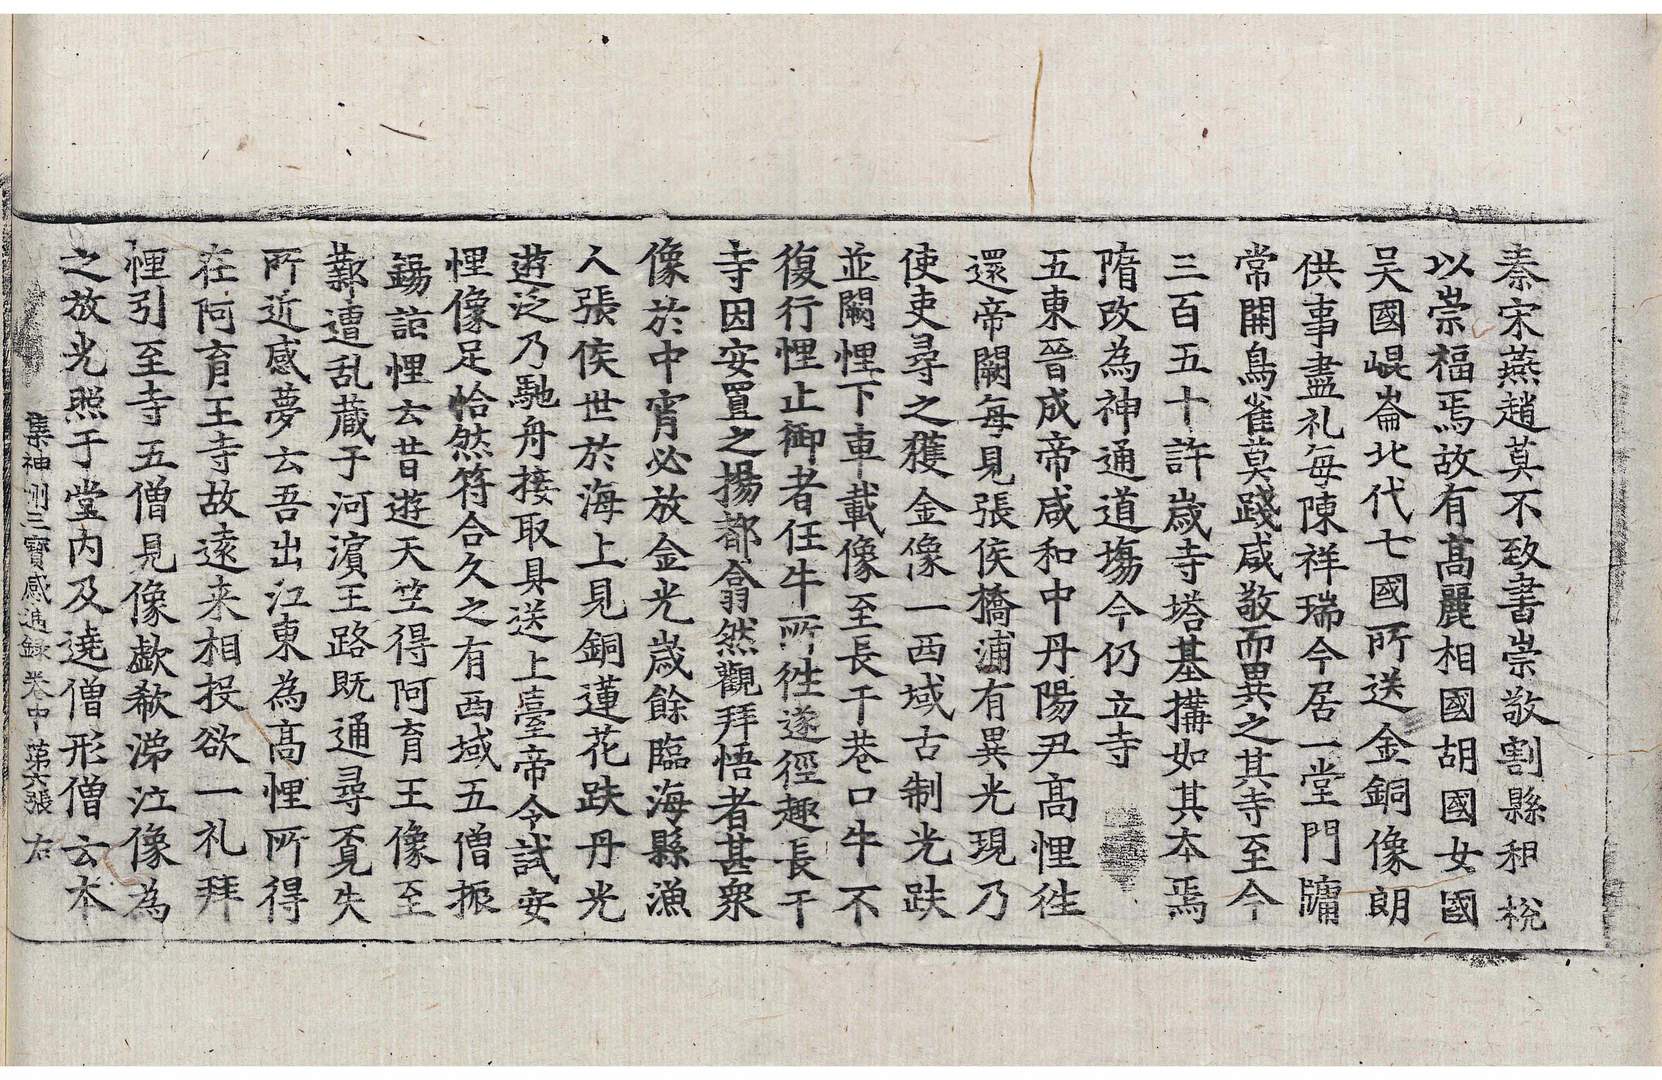 秦宋燕趙莫不致書崇敬割縣租稅
以崇福焉故有高麗相國胡國女國
吴國崐崙北代七國所送金銅像朗
供事盡礼每陳祥瑞今居一堂門牖
常開鳥雀莫踐咸敬而異之其寺至今
三百五十許歲寺塔基搆如其本焉
隋改為神通道場今仍立寺
五東晉成帝咸和中丹陽尹高悝徃
還帝闕每見張侯橋浦有異光現乃
使吏尋之獲金像一西域古制光趺
並闕悝下車載像至長干巷口牛不
復行悝止御者任牛所徃遂徑趣長干
寺因安置之揚都翕然觀拜悟者甚衆
像於中宵必放金光歲餘臨海縣漁
人張侯世於海上見銅蓮花趺丹光
遊泛乃馳舟接取具送上臺帝令試安
悝像足恰然符合久之有西域五僧振
錫詣悝云昔遊天竺得阿育王像至
鄴遭乱藏于河濵王路既通尋覔失
所近感夢云吾出江東為高悝所得
在阿育王寺故遠来相投欲一礼拜
悝引至寺五僧見像歔欷涕泣像為
之放光照于堂内及遶僧形僧云本
集神州三寶感通録卷中 第六張 右